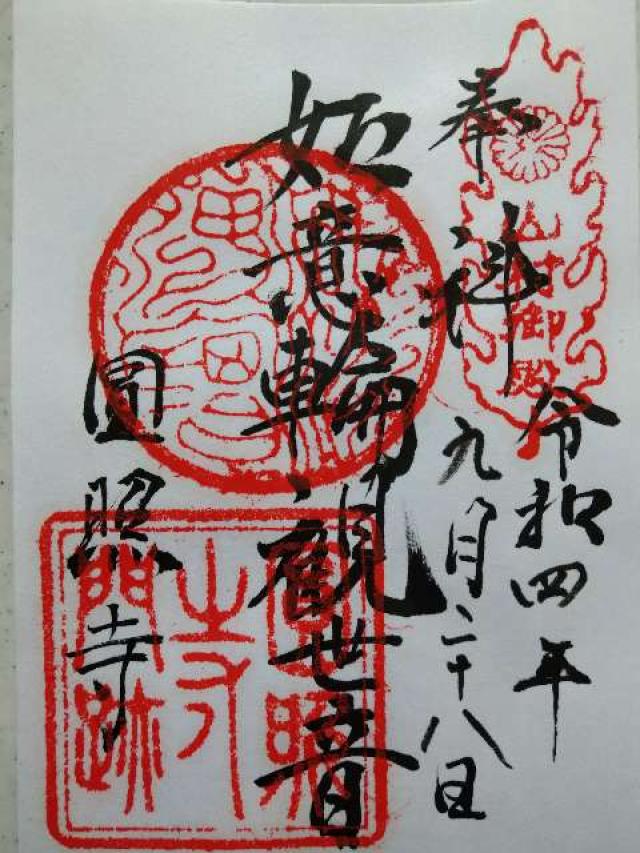 奉拝
山村御殿
令和四年
九月二十八日
如意輪観世音
圓照寺
圓照
寺
門跡